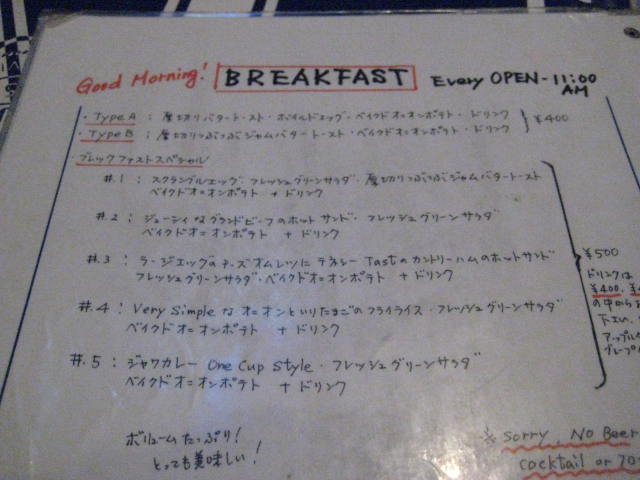 Good Morning! BREAKFAST Every OPEN - 11:00 AM
・Type A : 厚切りバタートースト・ボイルドエッグ・ベイクドオニオンポテト・ドリンク
・Type B : 厚切りつぶつぶジャムバタートースト・ベイクドオニオンポテト・ドリンク
¥400
・ブレックファストスペシャル
#.1 : スクランブルエッグ・フレッシュグリーンサラダ・厚切りつぶつぶジャムバタートースト
ベイクドオニオンポテト + ドリンク
#.2 : ジューシィなグランドビーフのホットサンド・フレッシュグリーンサラダ
ベイクドオニオンポテト + ドリンク
#.3 : ラージエッグのチーズオムレツにテネシーTastのカントリーハムのホットサンド
フレッシュグリーンサラダ・ベイクドオニオンポテト + ドリンク
#.4 : Very Simple なオニオンといりたまごのフライライス・フレッシュグリーンサラダ
ベイクドオニオンポテト + ドリンク
#.5 : ジャワカレー One Cup Style・フレッシュグリーンサラダ
ベイクドオニオンポテト + ドリンク
¥500
ドリンクは
¥400.
の中から
下さい.
アップル
グレープ
ボリュームたっぷり!
とっても美味しい!
※ Sorry, No Beer
cocktail or